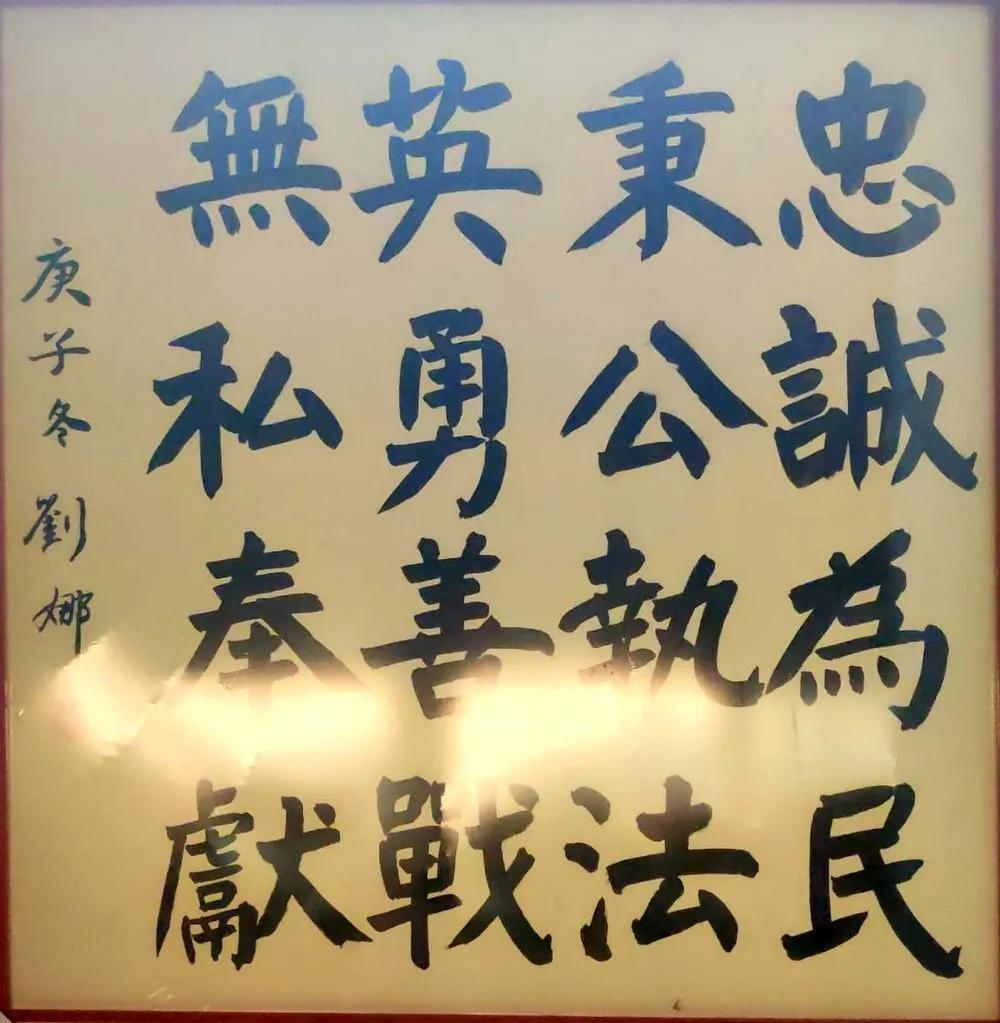 忠誠為民
秉公執法
英勇善戰
無私奉獻
庚子冬劉娜